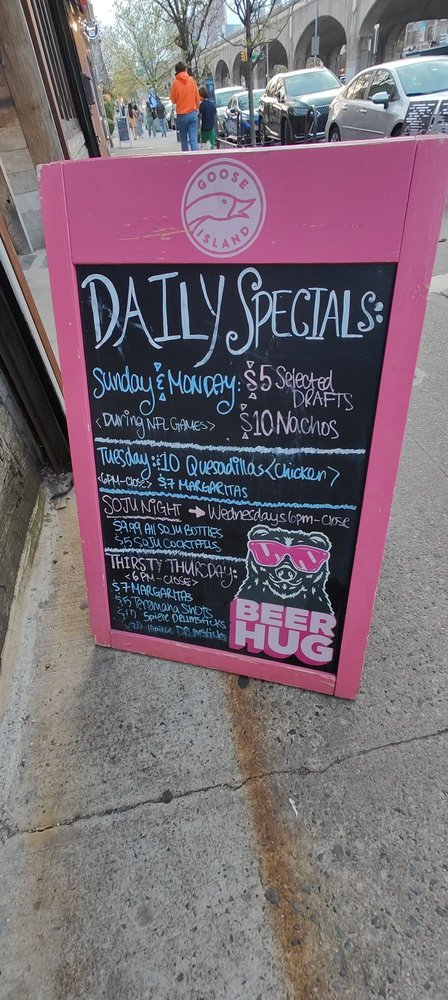 GOOSE
ISLAND
DAILY SPECIALS:
Sunday & MONDAY: $5 Selected
DRAFTS
<During NFL GAMES> $10 Nachos
Tuesday: $10 Quesadillas <Chicken>
<6PM-Close> $7 MARGARITAS
SOJU NIGHT → Wednesdays 6pm-Close
$9.99 All SOJU BOTTLES
$5 SOJU COCKTAILS
THIRSTY THURSDAY:
<6PM-CLOSE>
$7 MARGARITAS
$5 Teremana Shots
5 Piece DRUMSTICKS
Piece DRUMSTICKS
BEER
HUG